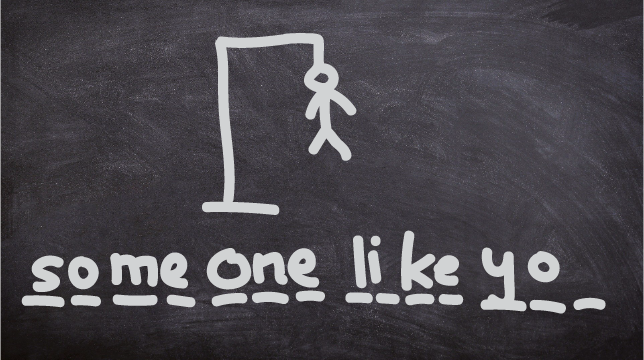 some one like yo_